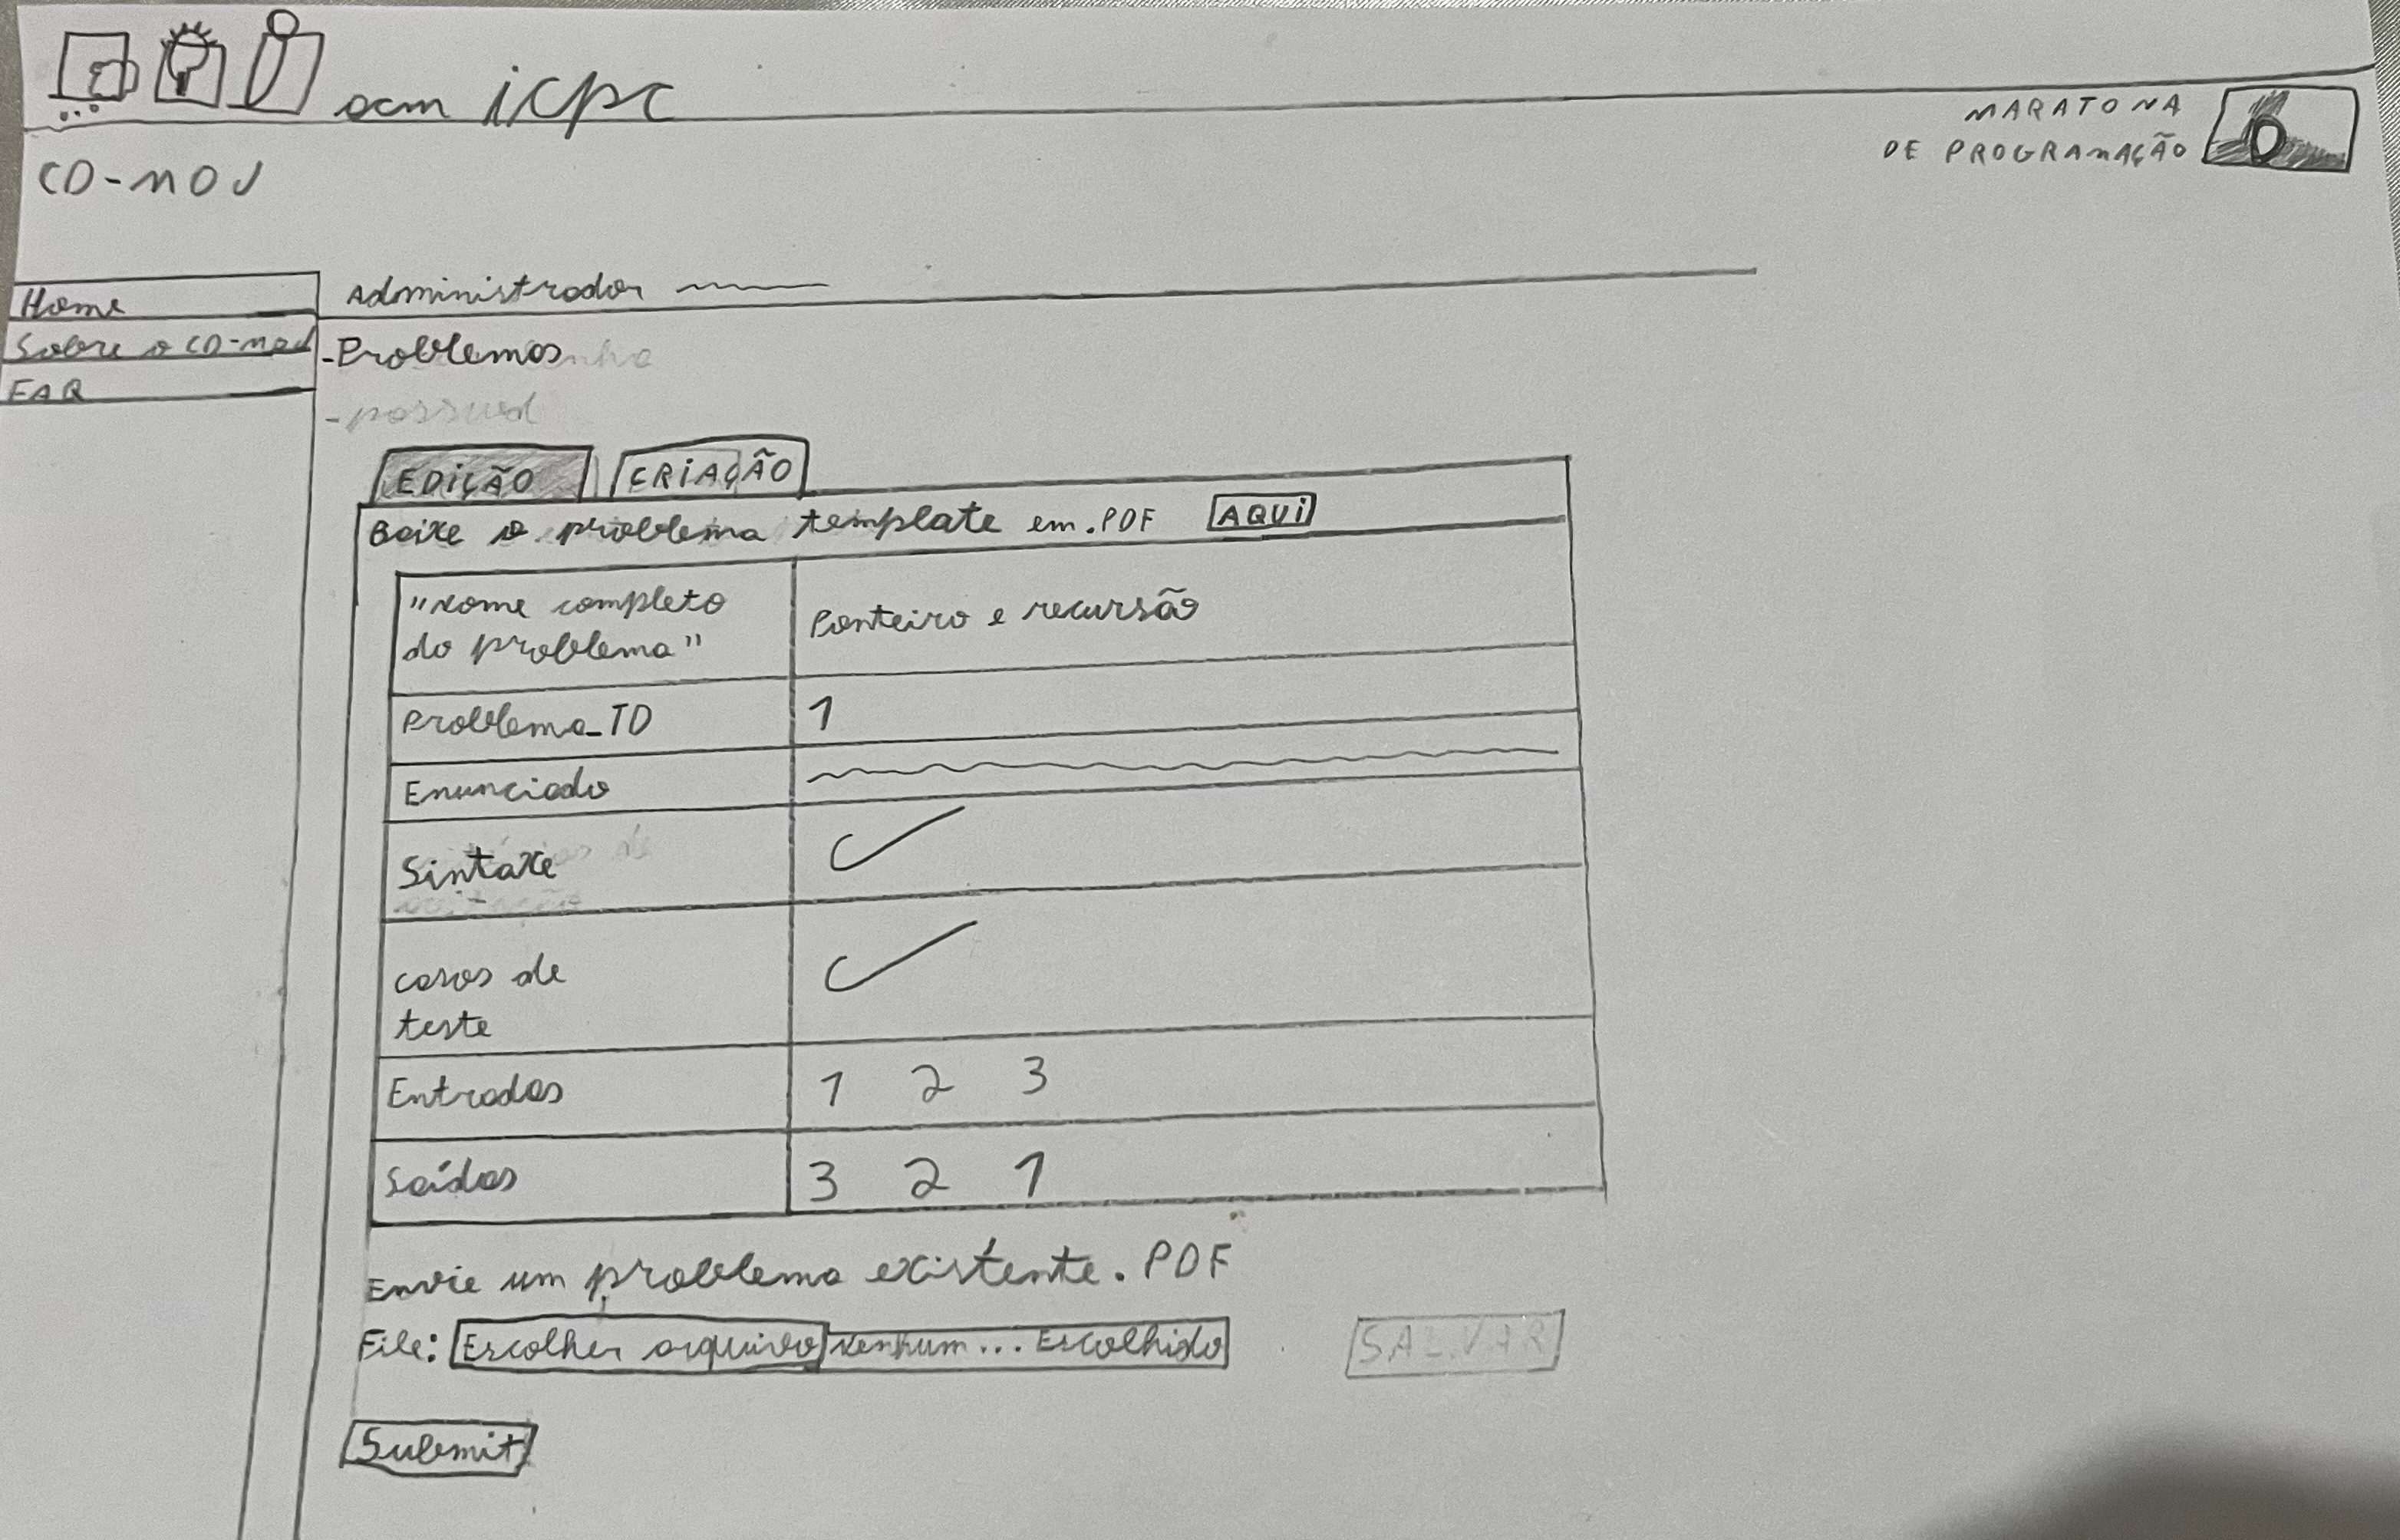 acm icpc
MARATONA
DE PROGRAMAÇÃO
CD-MOJ
Home
Sobre o CD-MOJ
FAQ
Administrador
-Problemas
EDIÇÃO CRIAÇÃO
Baixe o problema template em .PDF AQUI
"Nome completo
do problema"
Ponteiro e recursão
Problema_ID 1
Enunciado
Sintaxe
casos de
teste
Entradas 1 2 3
Saídas 3 2 1
Envie um problema existente. PDF
File: Escolher arquivo Nenhum... Escolhido SALVAR
Submit